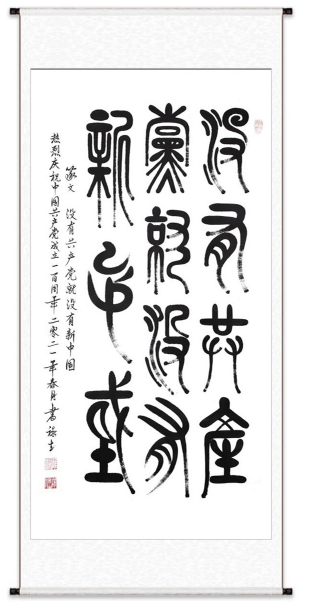 没有共產
黨就没有
新中國
篆文 没有共产党就没有新中国
热烈庆祝中国共产党成立一百周年 二零二一年春月書